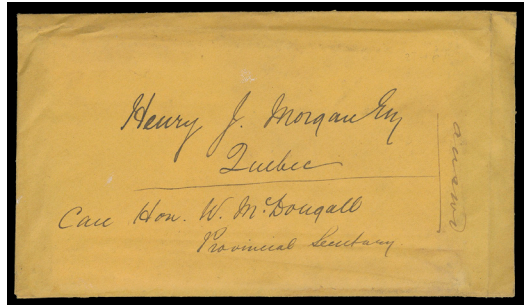 Henry J. Morgan Esq
Quebec
Care Hon. W. McDougall
Provincial Secretary